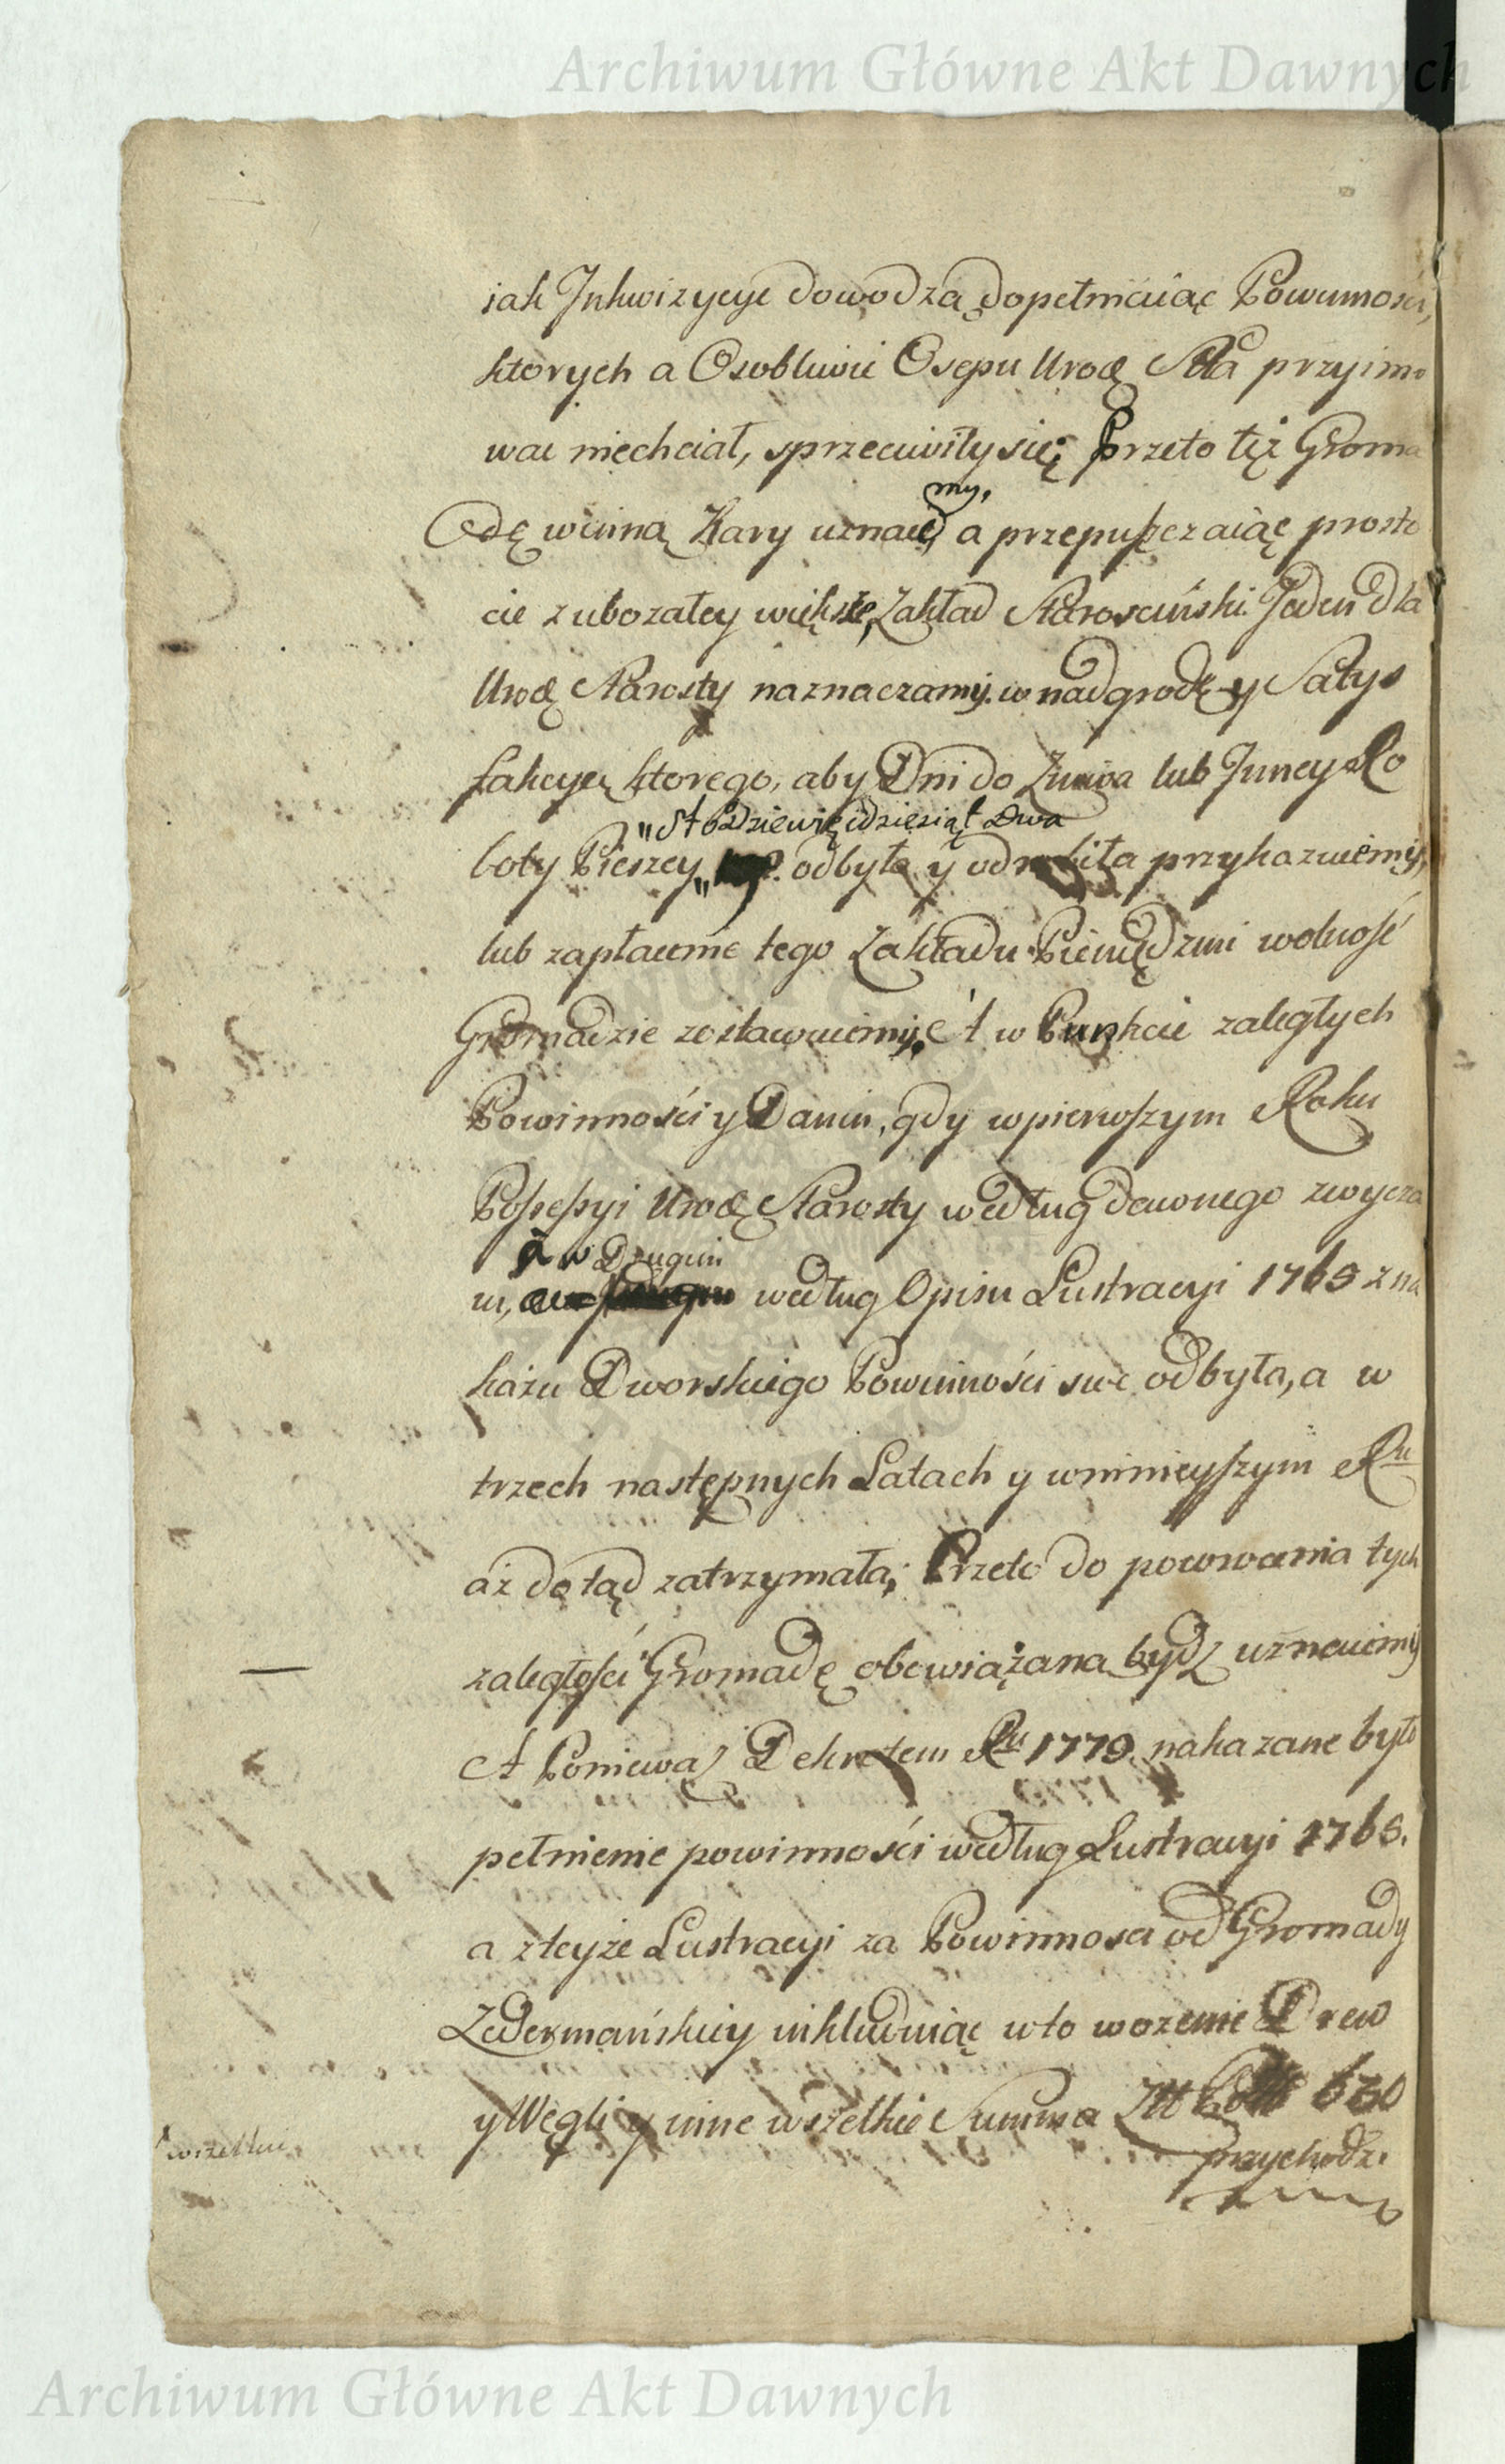 Archiwum Główne Akt Dawnych
iak Inkwizycye dowodzą dopełniaiąc Powinności,
ktorych a Osobliwie Osepu Urodz Stta przyimo
wac niechciał, sprzeciwiły się; Przeto też Groma
my,
dę winną Kary uznaie, a przepuszczaiąc prosto
cie zubozałey większe, Zakład Starosciński Jeden dla
Urodz Starosty naznaczamy. w nadgrodę y Satys
fakcyą ktorego, aby Dni do Zniwa lub Inney Ro
"Sto Dziewięcdziesiąt Dwa
boty Pieszey" odbyła y odrobiła przykazuiemy,
lub zapłacenie tego Zakładu Pieniędzmi wolność
Gromadzie zostawuiemy. A w Punkcie zaległych
Powinności y Danin, gdy wpierwszym Roku
Possessyi Urodz Starosty według dawnego zwycza
a w Drugim
iu, według Opisu Lustracyi 1765 z na
kazu Dworskiego Powinności swe odbyła, a w
trzech następnych Latach y wninieyszym Ru
aż dotąd zatrzymała; Przeto do
tych
zaległości Gromadę obowiązana bydz uznaiemy
A Poniewaz Dekretem Ru 1779 nakazane było
pełnienie powinności według Lustracyi 1765.
a zteyże Lustracyi za Powinnosci od Gromady
Zedermańskiey inkluduiąc wto wozenie Drew
y Węgli y inne wszelkie Summa Złł 630
wszelkie
przychodzi
Archiwum Główne Akt Dawnych